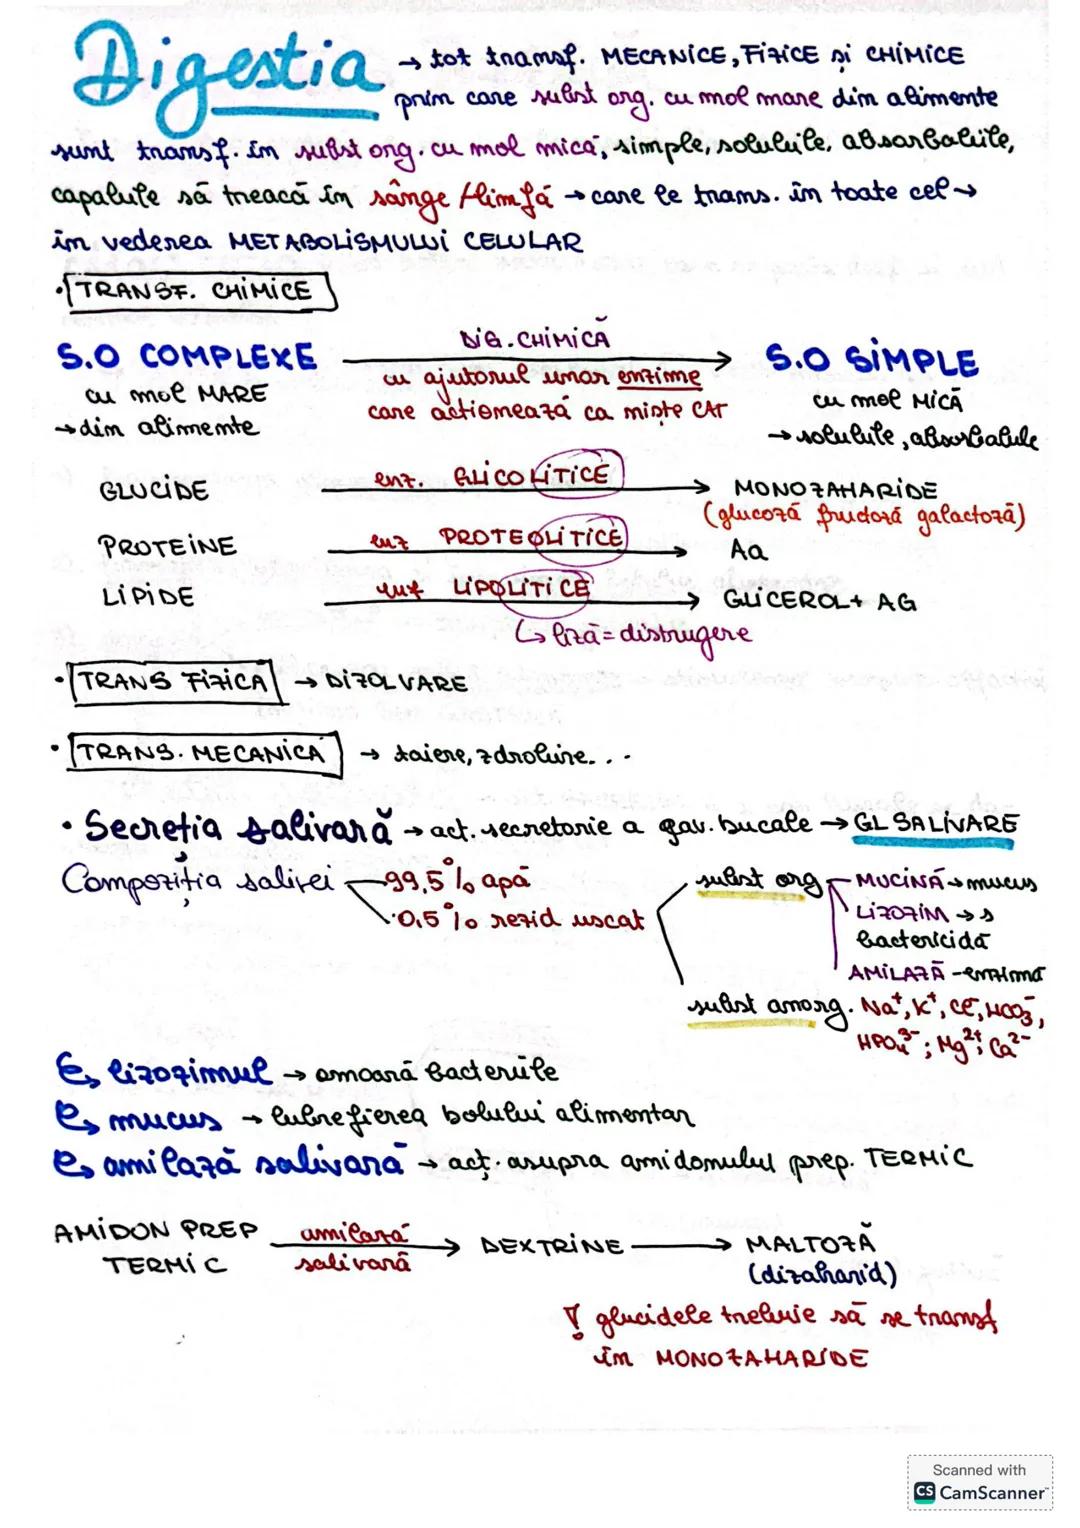 Digestia → tot transf. MECANICE, FIZICE și CHIMICE
prin care subst org. cu mol mare din alimente
sunt transf. în subst org. cu mol mică, simple, solubile, absorbabile,
capabile să treacă în sânge/limfă → care le trans. în toate cel →
în vederea METABOLISMULUI CELULAR
• TRANSF. CHIMICE
S.O COMPLEXE DIG. CHIMICĂ S.O SIMPLE
cu mol MARE cu ajutorul unor enzime cu mol MICĂ
→ din alimente care acționează ca niște CAT → solubile, absorbabile
GLUCIDE enz. GLICOLITICE → MONOZAHARIDE
(glucoză fructoză galactoză)
PROTEINE enz PROTEOLITICE → Aa
LIPIDE enz LIPOLITICE → GLICEROL + AG
↳ liză = distrugere
• TRANS FIZICĂ → DIZOLVARE
• TRANS. MECANICĂ → taiere, zdrobire...
• Secreția salivară → act. secretorie a cav. bucale → GL SALIVARE
Compoziția salivei 99,5% apă
0,5% rezid uscat
subst org MUCINĂ → mucus
LIZOZIM → s
bactericidă
AMILAZĂ - enzimă
subst anorg. Na⁺, K⁺, Cl⁻, HCO₃⁻,
HPO₄³⁻; Mg²⁺; Ca²⁻
↳ lizozimul → omoară bacteriile
↳ mucus → lubrefierea bolului alimentar
↳ amilază salivară → acț. asupra amidonului prep. TERMIC
AMIDON PREP TERMIC amilază salivară → DEXTRINE → MALTOZĂ
(dizaharid)
! glucidele trebuie să se transf
în MONOZAHARIDE
Scanned with
CS CamScanner